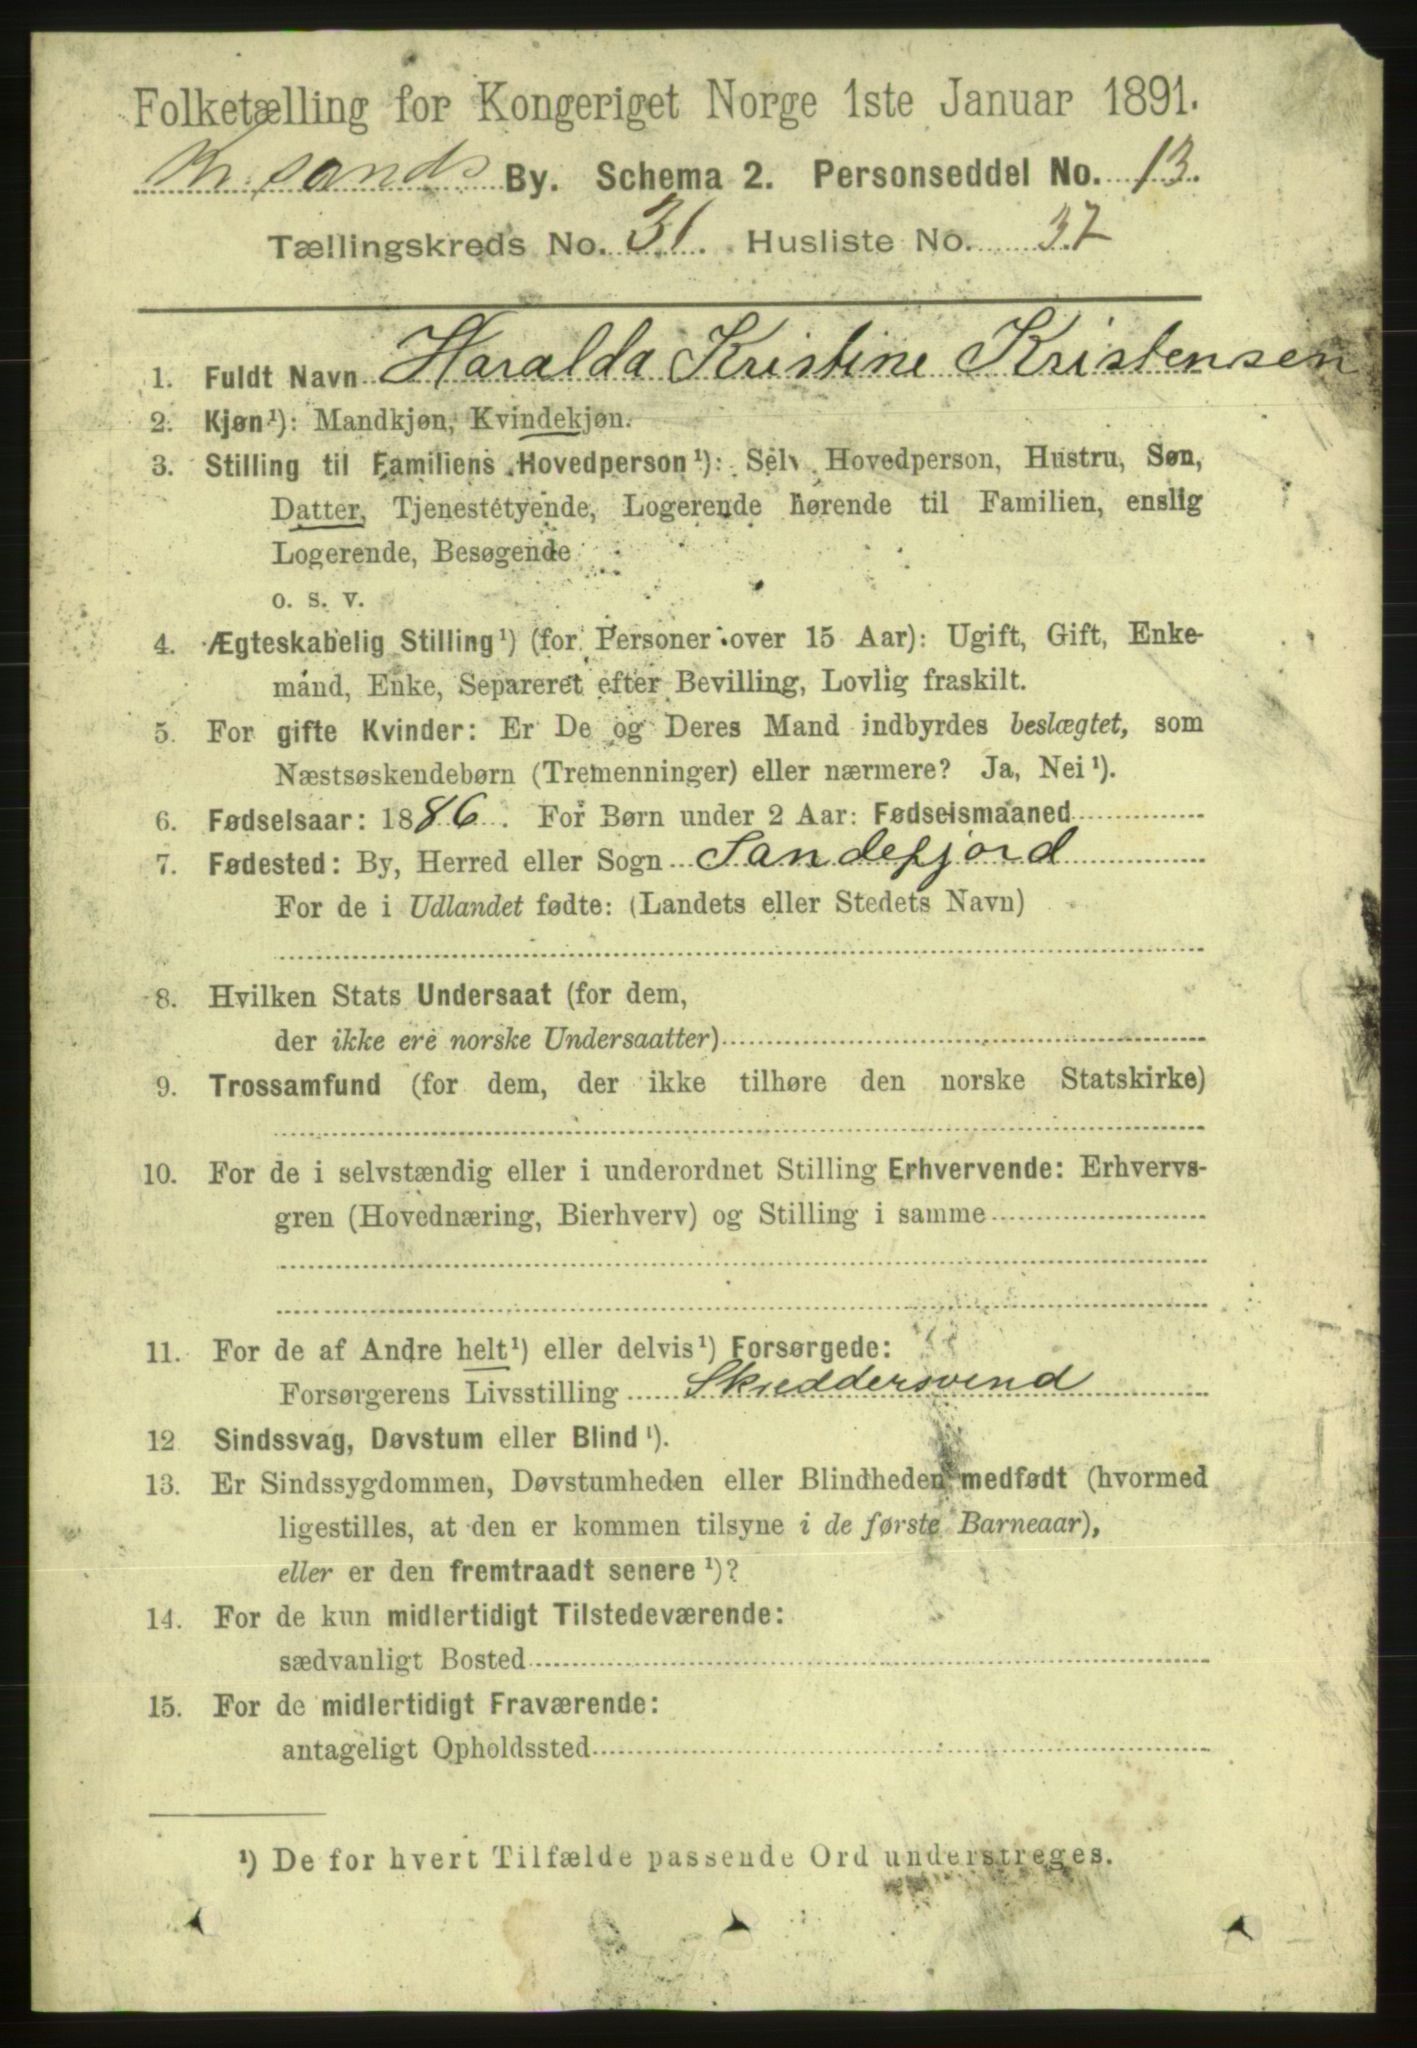 Folketælling for Kongeriget Norge 1ste Januar 1891.
Kr.sands By. Schema 2. Personseddel No. 13.
Tællingskreds No. 31. Husliste No. 37
1. Fuldt Navn Haralda Kristine Kristensen
2. Kjøn¹): Mandkjøn, Kvindekjøn.
3. Stilling til Familiens Hovedperson¹): Selv Hovedperson, Hustru, Søn,
Datter, Tjenestetyende, Logerende hørende til Familien, enslig
Logerende, Besøgende
o. s. v.
4. Ægteskabelig Stilling¹) (for Personer over 15 Aar): Ugift, Gift, Enke-
mand, Enke, Separeret efter Bevilling, Lovlig fraskilt.
5. For gifte Kvinder: Er De og Deres Mand indbyrdes beslægtet, som
Næstsøskendebørn (Tremenninger) eller nærmere? Ja, Nei¹).
6. Fødselsaar: 1886. For Børn under 2 Aar: Fødselsmaaned
7. Fødested: By, Herred eller Sogn Sandefjord
For de i Udlandet fødte: (Landets eller Stedets Navn)
8. Hvilken Stats Undersaat (for dem,
der ikke ere norske Undersaatter)
9. Trossamfund (for dem, der ikke tilhøre den norske Statskirke)
10. For de i selvstændig eller i underordnet Stilling Erhvervende: Erhvervs-
gren (Hovednæring, Bierhverv) og Stilling i samme
11. For de af Andre helt¹) eller delvis¹) Forsørgede:
Forsørgerens Livsstilling Skræddersvend
12 Sindssvag, Døvstum eller Blind¹).
13. Er Sindssygdommen, Døvstumheden eller Blindheden medfødt (hvormed
ligestilles, at den er kommen tilsyne i de første Barneaar),
eller er den fremtraadt senere¹)?
14. For de kun midlertidigt Tilstedeværende:
sædvanligt Bosted
15. For de midlertidigt Fraværende:
antageligt Opholdssted
¹) De for hvert Tilfælde passende Ord understreges.